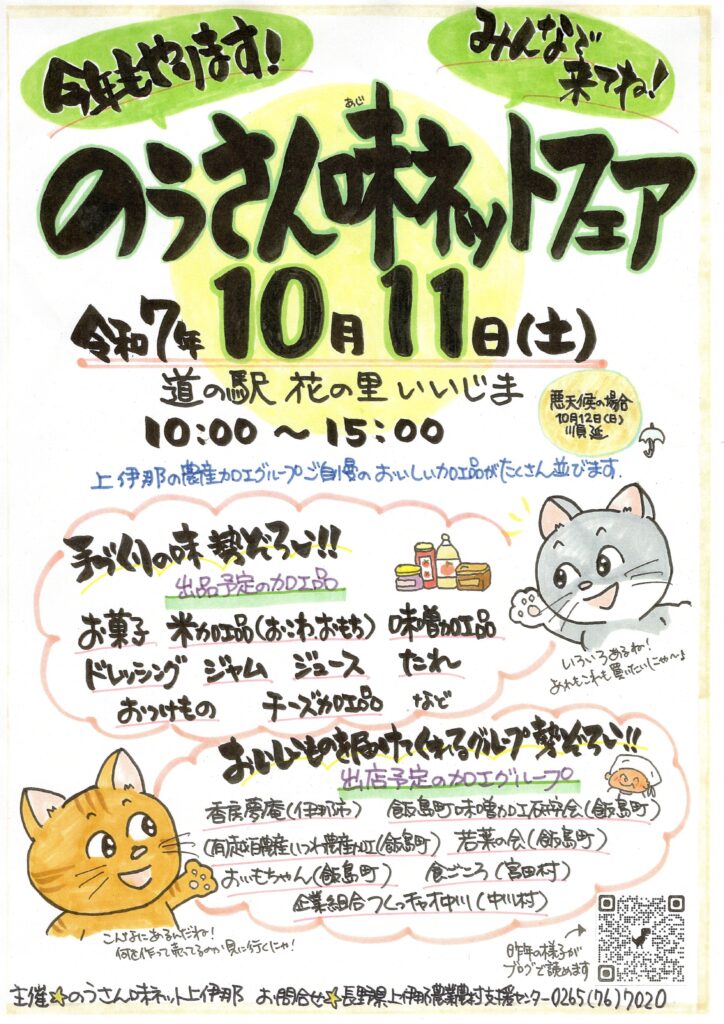 今年もやります!
みんなで
来てね!
あじ
のうさん味ネットフェア
令和7年 10月11日(土)
道の駅 花の里いいじま
10:00〜15:00
悪天候の場合
10月12日(日)
順延
上伊那の農産加工グループご自慢のおいしい加工品がたくさん並びます.
手づくりの味 勢ぞろい!!
出品予定の加工品
お菓子 米加工品(おこわ、おもち) 味噌加工品
ドレッシング ジャム ジュース たれ
おつけもの チーズ加工品 など
いろいろあるね!
あれもこれも買いたいにゃ〜♪
おいしいものを届けてくれるグループ勢ぞろい!!
出店予定の加工グループ
香房夢庵(伊那市) 飯島町味噌加工研究会(飯島町)
(有)越百農産いつわ農産加工(飯島町) 若葉の会(飯島町)
おいもちゃん(飯島町) 食ごころ(宮田村)
企業組合つくっチャオ中川(中川村)
こんなにあるんだね!
何を作って売てるのか見に行くにゃ!
昨年の様子が
ブログで読めます
主催☆のうさん味ネット上伊那 お問合せ☆長野県上伊那農業農村支援センター0265(76)7020